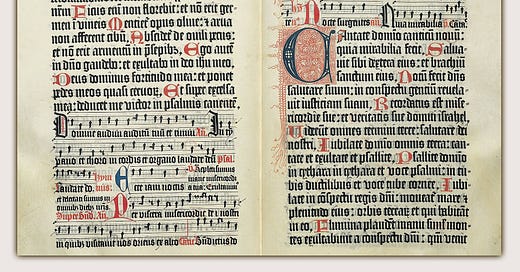 nō florebit: et nō erit ger-
men ī vineis Mentiet opus oliue: ⁊ arua
non afferent cibū. Abscīdet de ouili pecus:
et nō erit armentū in p̄sepibus. Ego autē
in dn̄o gaudebo: et exultabo in deo ihū meo.
Deus dominus fortitudo mea: et ponet
pedes meos quasi ceruorū. Et super excelsa
mea: deducet me victor in psalmis canentē.
Domine audiui auditū tuū et timui An̄. In
et choro in cordis et organo laudate deū
laudate
Per viscera misericordie dei nostri
in quibus visitauit nos oriens ex alto
Nocte surgentes an̄. mirabilia
Cantate domino canticū nouū:
quia mirabilia fecit. Salua-
uit sibi dextera eius: et brachiū
sanctum eius. Notum fecit dn̄s
salutare suum: in conspectu gentiū reuela-
uit iusticiam suam. Recordatus est mise-
ricordie sue: et veritatis sue domui israhel.
Viderunt omnes termini terre: salutare dei
nostri. Iubilate domino omnis terra: can-
tate et exultate et psallite. Psallite domino
in cythara et voce psalmi: in tu-
bis ductilibus et voce tube cornee. Iubi-
late in conspectu regis dn̄i: moueat mare et
plenitudo eius: orbis terrarū et qui habitāt
in eo. Flumina plaudent manu simul mon-
tes exultabunt a conspectu dn̄i: qm̄ venit